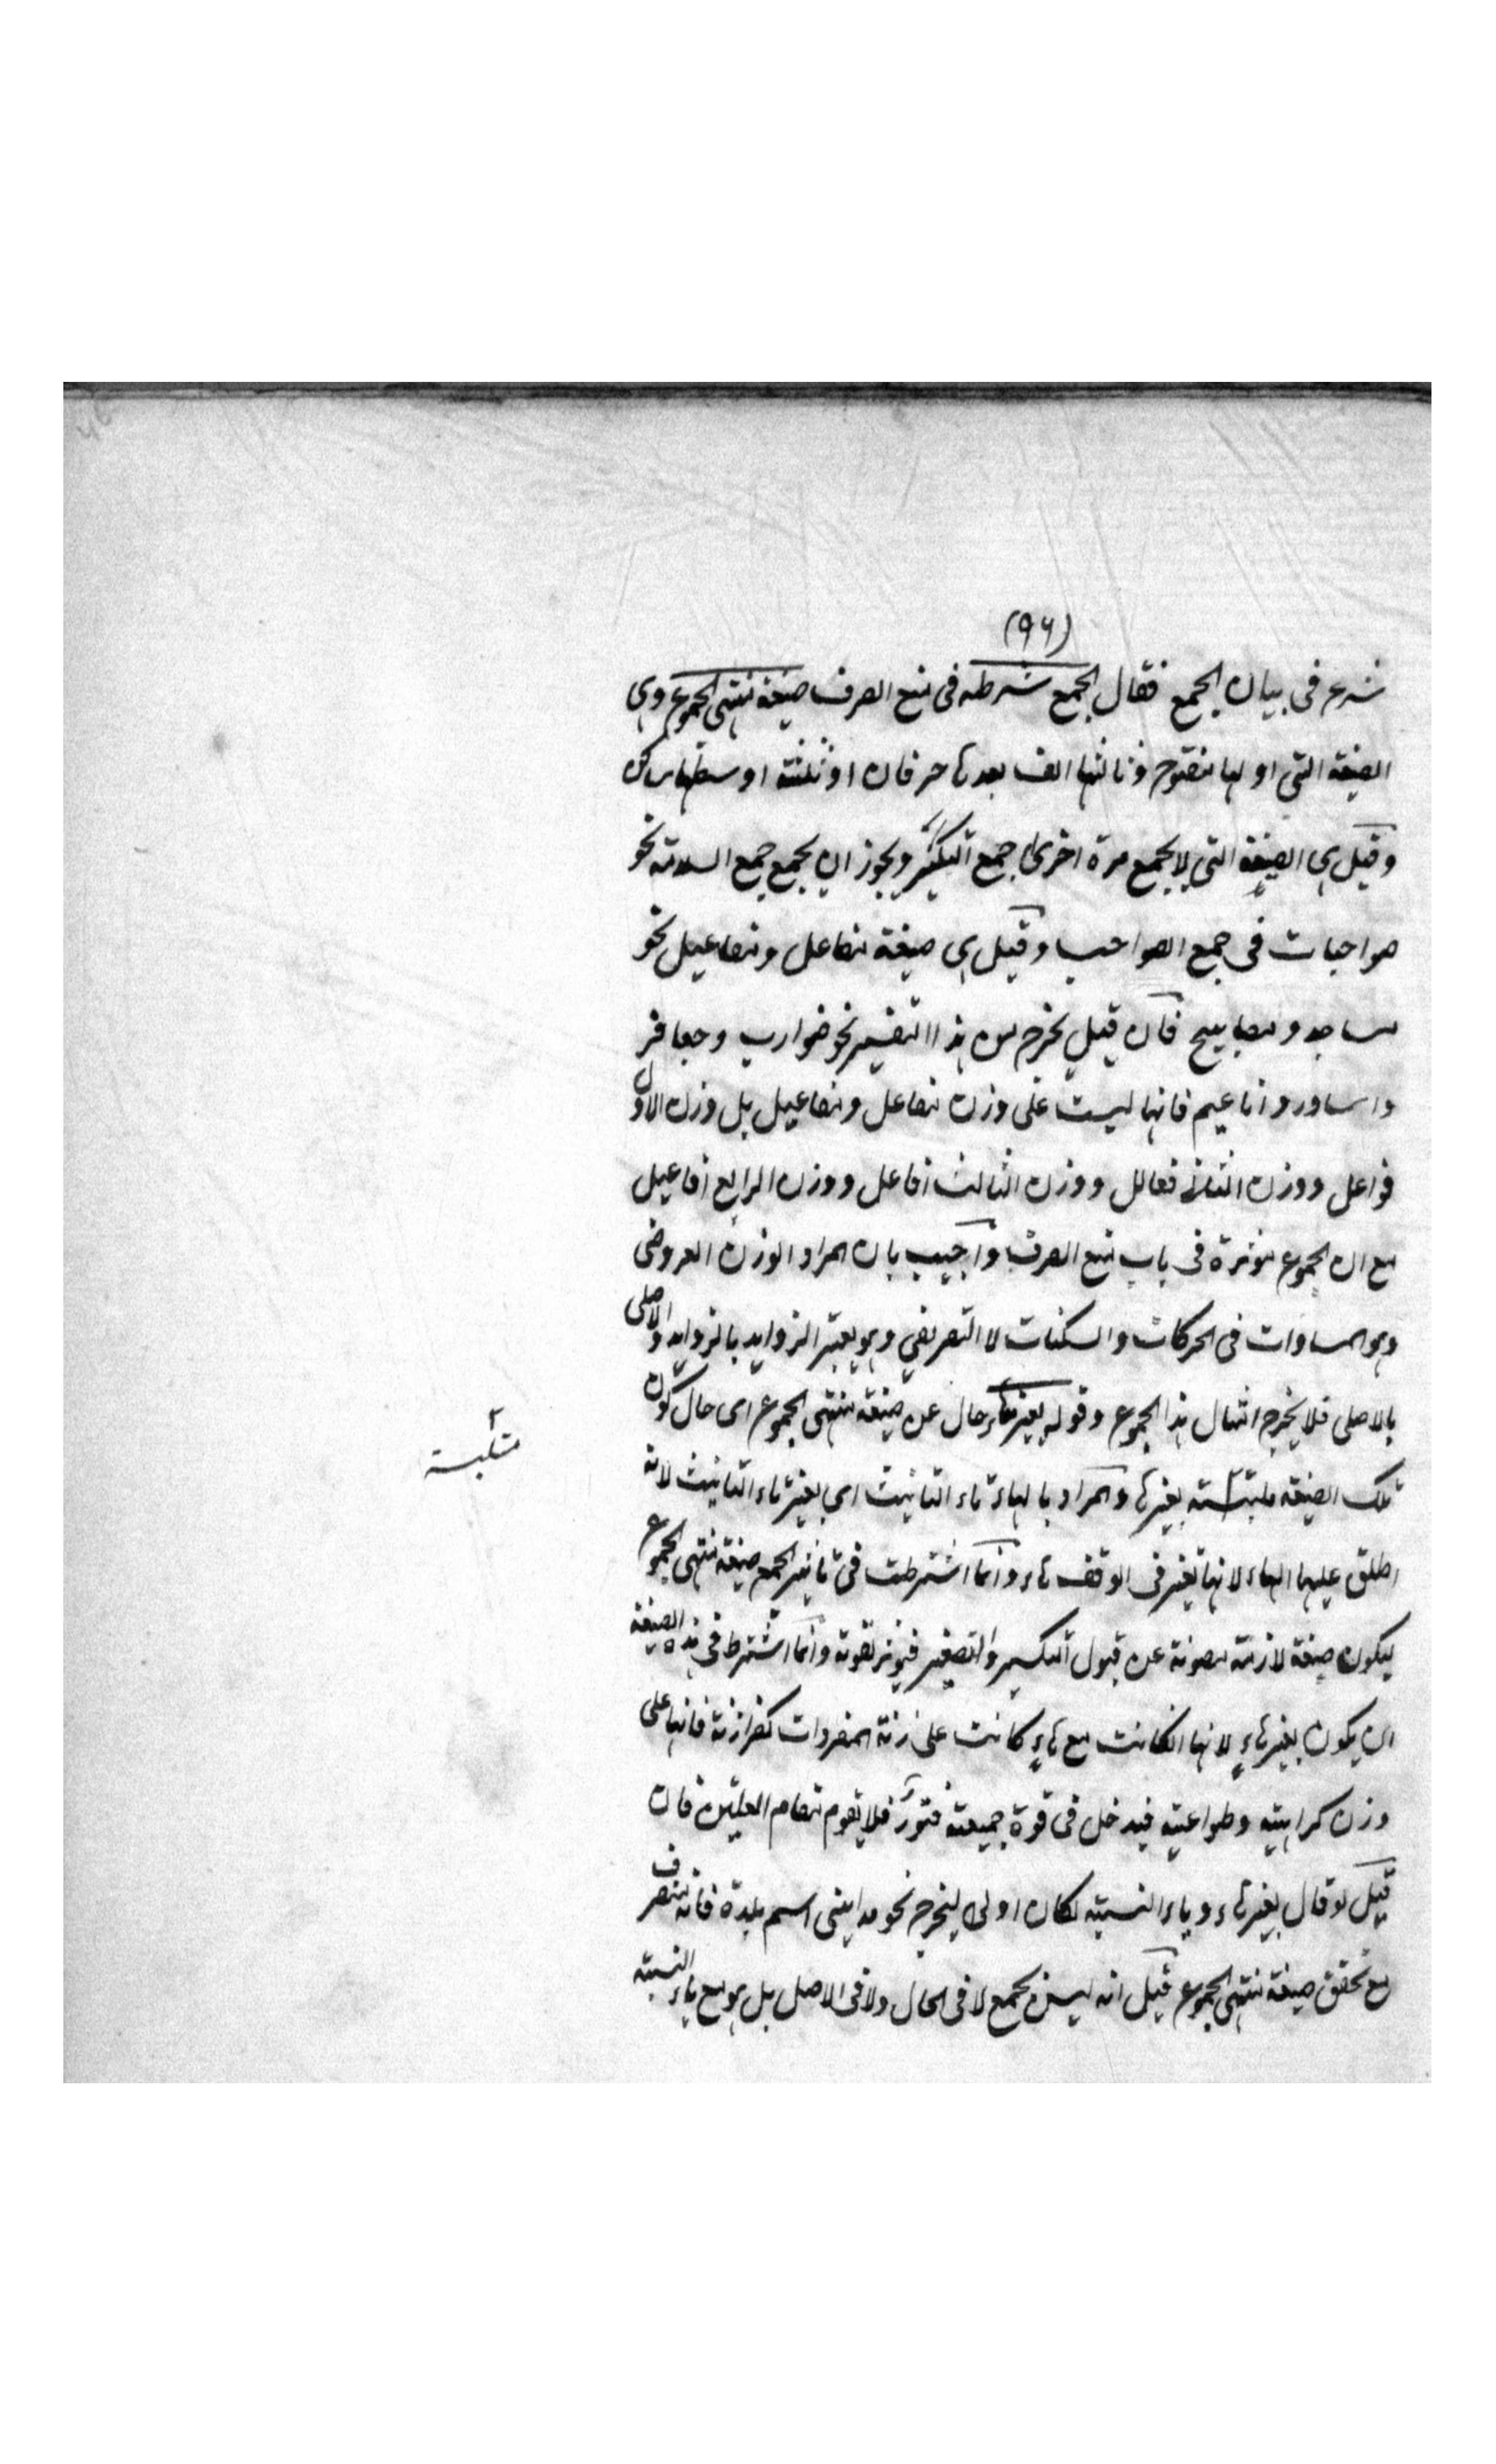 (٩٦)
شرع في بيان الجمع فقال الجمع شرطه في منع الصرف صيغة منتهى الجموع وهي
الصيغة التي اولها مفتوح وثالثها الف بعدها حرفان او ثلثة اوسطها ساكن
وقيل هي الصيغة التي لا يجمع مرة اخرى جمع التكسير ويجوز ان يجمع جمع السلامة نحو
صواحبات في جمع الصواحب وقيل هي صيغة مفاعل ومفاعيل نحو
مساجد ومصابيح فان قيل يخرج من هذا التفسير نحو ضوارب وجعافر
واساور واناعيم فانها ليست على وزن مفاعل ومفاعيل بل وزن الاول
فواعل ووزن الثاني فعالل ووزن الثالث افاعل ووزن الرابع افاعيل
مع ان الجموع مؤثرة في باب منع الصرف واجيب بان المراد الوزن العروضي
وهو المساوات في الحركات والسكنات لا التصريفي وهو يعتبر الزوايد بالزوايد والاصلي
بالاصلي فلا يخرج امثال هذا الجموع وقوله بغير هاء حال عن صيغة منتهى الجموع اى حال كون
تلك الصيغة ملتبسة بغيرها والمراد بالهاء تاء التانيث اى بغير تاء التانيث لانه
متلبسة
اطلق عليها الهاء لانها تغير في الوقف هاء وانما اشترطت في تاثير الجمع صيغة منتهى الجموع
ليكون صيغة لازمة مصونة عن قبول التكسير والتصغير فيؤثر لقوته وانما اشترط في هذه الصيغة
ان يكون بغير هاءٍ لانها ان كانت مع هاءٍ كانت على زنة المفردات كفرازنة فانها على
وزن كراهية وطواعية فيدخل في قوة جمعيته فتورٌ فلا يقوم مقام العلتين فان
قيل لو قال بغير هاء وياء النسبة لكان اولى ليخرج نحو مدايني اسم بلدة فانه منصرف
مع تحقق صيغة منتهى الجموع قيل انه ليس بجمع لا في الحال ولا في الاصل بل هو مع ياء النسبة